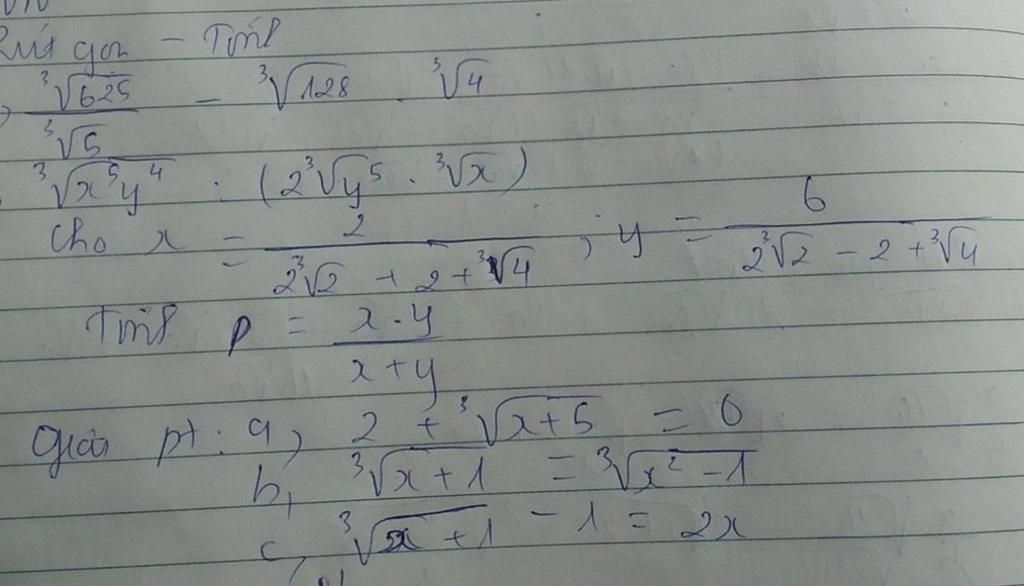 Rút gọn - Tính
∛625 / ∛5 - ∛128 . ∛4
∛(x⁵y⁴) : (2∛y⁵ . ∛x)
Cho x = 2 / (2∛2 + 2 + ∛4) ; y = 6 / (2∛2 - 2 + ∛4)
Tính P = x.y / (x+y)
Giải pt: a, 2 + ∛(x+5) = 0
b, ∛(x+1) = ∛(x²-1)
c, ∛(2x+1) - 1 = 2x